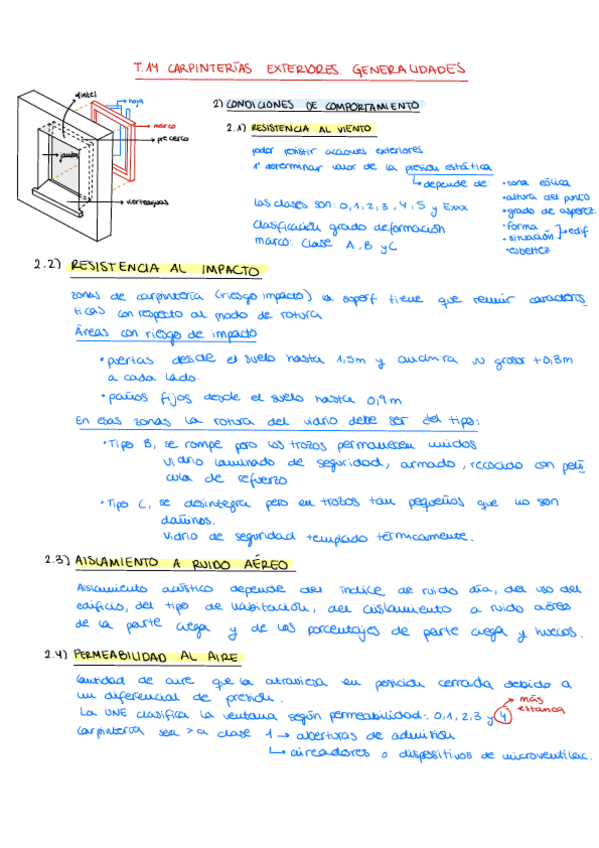 T.14 CARPINTERÍAS EXTERIORES. GENERALIDADES
dintel
hoja
marco
precerco
jamba
vierteaguas
2) CONDICIONES DE COMPORTAMIENTO
2.1) RESISTENCIA AL VIENTO
poder resistir acciones exteriores
1º determinar valor de la presión estática
↳ depende de:
• zona eólica
• altura del punto
• grado de asperez.
• forma
• situación
edif
• esbeltez
Las clases son: 0, 1, 2, 3, 4, 5 y Exxx
Clasificación grado deformación
marco: Clase A, B y C
2.2) RESISTENCIA AL IMPACTO
zonas de carpintería (riesgo impacto) la superf tiene que reunir caracterís
ticas con respecto al modo de rotura
Áreas con riesgo de impacto
• puertas desde el suelo hasta 1,5m y anchura grosor +0,3m
a cada lado.
• paños fijos desde el suelo hasta 0,9m
En esas zonas la rotura del vidrio debe ser del tipo:
• Tipo B, se rompe pero los trozos permanecen unidos
vidrio laminado de seguridad, armado, recocido con pelí
cula de refuerzo
• Tipo C, se desintegra pero en trozos tan pequeños que no son
dañinos.
vidrio de seguridad templado térmicamente.
2.3) AISLAMIENTO A RUIDO AÉREO
Aislamiento acústico depende del índice de ruido día, del uso del
edificio, del tipo de habitación, del aislamiento a ruido aéreo
de la parte ciega y de los porcentajes de parte ciega y huecos.
2.4) PERMEABILIDAD AL AIRE
Cantidad de aire que la atraviesa en posición cerrada debido a
un diferencial de presión.
más
estanca
La UNE clasifica la ventana según permeabilidad: 0, 1, 2, 3 y 4
Carpintería sea > a clase 1 → aberturas de admisión
↳ aireadores o dispositivos de microventilac.